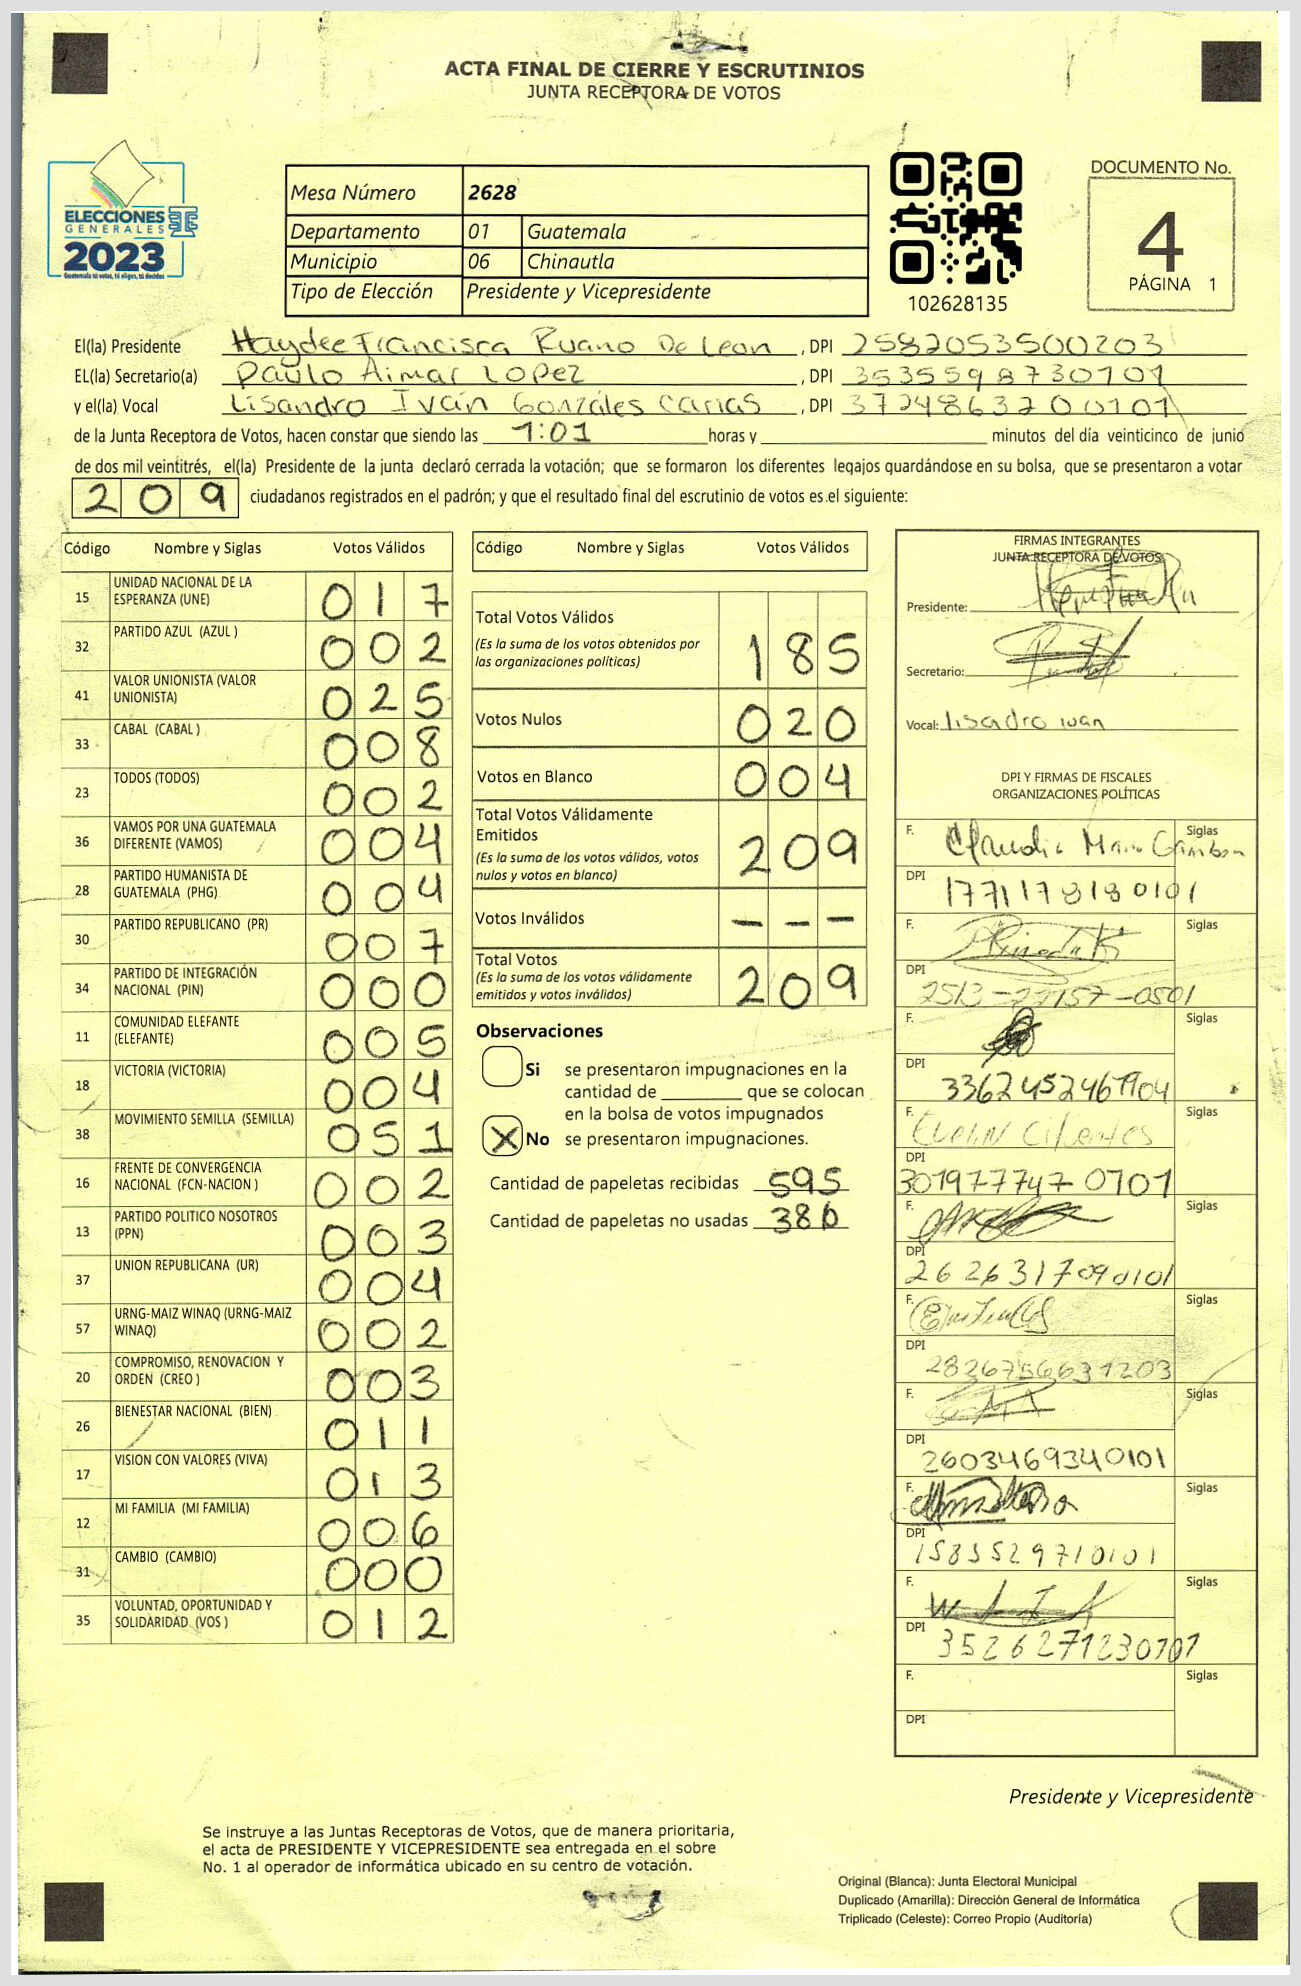 ACTA FINAL DE CIERRE Y ESCRUTINIOS
JUNTA RECEPTORA DE VOTOS
ELECCIONES
GENERALES
2023
Guatemala tú votas, tú eliges, tú decides
Mesa Número 2628
Departamento 01 Guatemala
Municipio 06 Chinautla
Tipo de Elección Presidente y Vicepresidente
102628135
DOCUMENTO No.
4
PÁGINA 1
El(la) Presidente Haydee Francisca Ruano De Leon , DPI 2582053500203
EL(la) Secretario(a) Paulo Aimar Lopez , DPI 3535598730101
y el(la) Vocal Lisandro Iván Gonzáles Carias , DPI 3724863200101
de la Junta Receptora de Votos, hacen constar que siendo las 7:01 horas y minutos del día veinticinco de junio
de dos mil veintitrés, el(la) Presidente de la junta declaró cerrada la votación; que se formaron los diferentes legajos guardándose en su bolsa, que se presentaron a votar
209 ciudadanos registrados en el padrón; y que el resultado final del escrutinio de votos es el siguiente:
Código Nombre y Siglas Votos Válidos
15 UNIDAD NACIONAL DE LA ESPERANZA (UNE) 017
32 PARTIDO AZUL (AZUL ) 002
41 VALOR UNIONISTA (VALOR UNIONISTA) 025
33 CABAL (CABAL ) 008
23 TODOS (TODOS) 002
36 VAMOS POR UNA GUATEMALA DIFERENTE (VAMOS) 004
28 PARTIDO HUMANISTA DE GUATEMALA (PHG) 004
30 PARTIDO REPUBLICANO (PR) 007
34 PARTIDO DE INTEGRACIÓN NACIONAL (PIN) 000
11 COMUNIDAD ELEFANTE (ELEFANTE) 005
18 VICTORIA (VICTORIA) 004
38 MOVIMIENTO SEMILLA (SEMILLA) 051
16 FRENTE DE CONVERGENCIA NACIONAL (FCN-NACION ) 002
13 PARTIDO POLITICO NOSOTROS (PPN) 003
37 UNION REPUBLICANA (UR) 004
57 URNG-MAIZ WINAQ (URNG-MAIZ WINAQ) 002
20 COMPROMISO, RENOVACION Y ORDEN (CREO ) 003
26 BIENESTAR NACIONAL (BIEN) 011
17 VISION CON VALORES (VIVA) 013
12 MI FAMILIA (MI FAMILIA) 006
31 CAMBIO (CAMBIO) 000
35 VOLUNTAD, OPORTUNIDAD Y SOLIDARIDAD (VOS ) 012
Código Nombre y Siglas Votos Válidos
Total Votos Válidos 185
(Es la suma de los votos obtenidos por
las organizaciones políticas)
Votos Nulos 020
Votos en Blanco 004
Total Votos Válidamente
Emitidos 209
(Es la suma de los votos válidos, votos
nulos y votos en blanco)
Votos Inválidos - - -
Total Votos 209
(Es la suma de los votos válidamente
emitidos y votos inválidos)
Observaciones
Si se presentaron impugnaciones en la
cantidad de ________ que se colocan
en la bolsa de votos impugnados
X No se presentaron impugnaciones.
Cantidad de papeletas recibidas 595
Cantidad de papeletas no usadas 386
FIRMAS INTEGRANTES
JUNTA RECEPTORA DE VOTOS
Presidente:
Secretario:
Vocal: lisadro ivan
DPI Y FIRMAS DE FISCALES
ORGANIZACIONES POLÍTICAS
F. Claudia Siglas
DPI 1771178180101
F. Siglas
DPI 2513-27157-0501
F. Siglas
DPI 3362452461904
F. Evelin Cifuentes Siglas
DPI 3019777470701
F. Siglas
DPI 2626317090101
F. Siglas
DPI 2826756631203
F. Siglas
DPI 2603469340101
F. Siglas
DPI 1583529710101
F. Siglas
DPI 3526271230101
F. Siglas
DPI
Presidente y Vicepresidente
Se instruye a las Juntas Receptoras de Votos, que de manera prioritaria,
el acta de PRESIDENTE Y VICEPRESIDENTE sea entregada en el sobre
No. 1 al operador de informática ubicado en su centro de votación.
Original (Blanca): Junta Electoral Municipal
Duplicado (Amarilla): Dirección General de Informática
Triplicado (Celeste): Correo Propio (Auditoría)